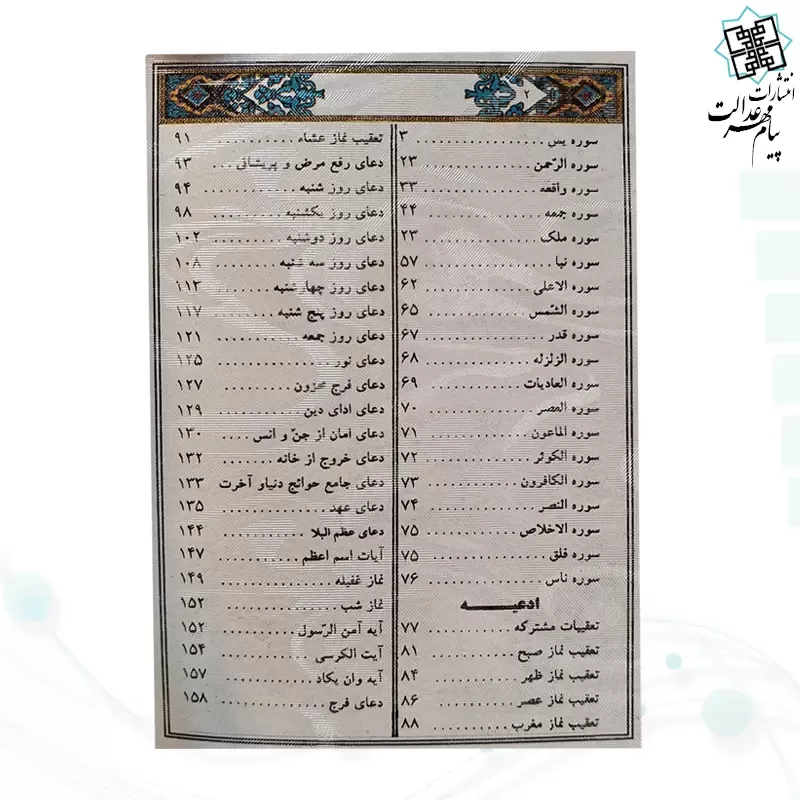 انتشارات
پیام مهر عدالت
۲
سوره یس ................ ۳
سوره الرّحمن ............. ۲۳
سوره واقعه .............. ۳۳
سوره جمعه .............. ۴۴
سوره ملک ............... ۲۳
سوره نبا ................. ۵۷
سوره الاعلی .............. ۶۲
سوره الشّمس ............. ۶۵
سوره قدر ................ ۶۷
سوره الزلزله .............. ۶۸
سوره العادیات ............ ۶۹
سوره العصر .............. ۷۰
سوره الماعون ............. ۷۱
سوره الکوثر .............. ۷۲
سوره الکافرون ............ ۷۳
سوره النصر .............. ۷۴
سوره الاخلاص ............ ۷۵
سوره فلق ................ ۷۵
سوره ناس ............... ۷۶
ادعیـــه
تعقیبات مشترکه .......... ۷۷
تعقیب نماز صبح .......... ۸۱
تعقیب نماز ظهر .......... ۸۴
تعقیب نماز عصر .......... ۸۶
تعقیب نماز مغرب ......... ۸۸
تعقیب نماز عشاء .......... ۹۱
دعای رفع مرض و پریشانی ... ۹۳
دعای روز شنبه ............ ۹۴
دعای روز یکشنبه .......... ۹۸
دعای روز دوشنبه .......... ۱۰۲
دعای روز سه شنبه ......... ۱۰۸
دعای روز چهارشنبه ........ ۱۱۳
دعای روز پنج شنبه ........ ۱۱۷
دعای روز جمعه ........... ۱۲۱
دعای نور ................ ۱۲۵
دعای فرج محزون .......... ۱۲۷
دعای ادای دین ............ ۱۲۹
دعای امان از جنّ و انس .... ۱۳۰
دعای خروج از خانه ........ ۱۳۲
دعای جامع حوائج دنیاو آخرت ۱۳۳
دعای عهد ............... ۱۳۵
دعای عظم البلا ........... ۱۴۴
آیات اسم اعظم ............ ۱۴۷
نماز غفیله ............... ۱۴۹
نماز شب ................ ۱۵۲
آیه آمن الرّسول ........... ۱۵۲
آیت الکرسی ............. ۱۵۴
آیه وان یکاد ............. ۱۵۷
دعای فرج ............... ۱۵۸